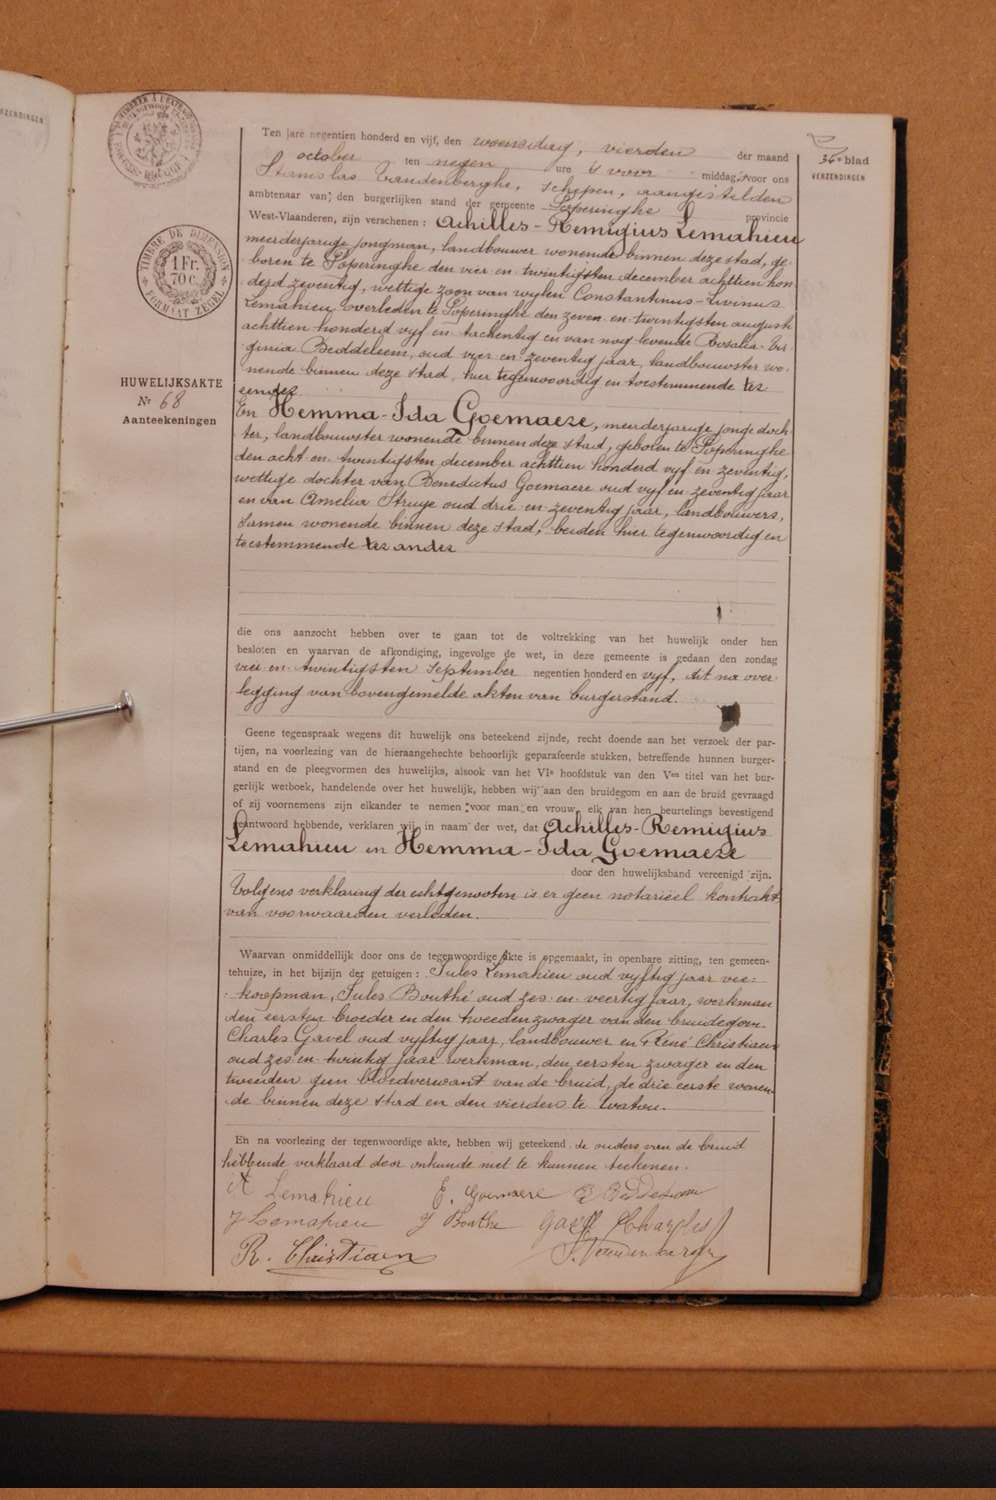 VERZENDINGEN
TIMBRE DE DIMENSION
1 Fr.
70 c.
FORMAAT ZEGEL
HUWELIJKSAKTE
Nr 68
Aanteekeningen
36e blad
VERZENDINGEN
Ten jare negentien honderd en vijf, den woensdag, vierden der maand
october ten negen ure 's voor middag, voor ons
Stanislas Vandenberghe, schepen, aangestelden
ambtenaar van den burgerlijken stand der gemeente Poperinghe provincie
West-Vlaanderen, zijn verschenen : Achilles-Remigius Lemahieu
meerderjarige jongman, landbouwer wonende binnen deze stad, ge-
boren te Poperinghe den vier en twintigsten december achttien hon-
derd zeventig, wettige zoon van wylen Constantinus-Livinus
Lemahieu, overleden te Poperinghe den zeven en twintigsten augusti
achttien honderd vyf en tachentig en van nog levende Rosalia-Vir-
ginia Beddeleem, oud vier en zeventig jaar, landbouwster wo-
nende binnen deze stad, hier tegenwoordig en toestemmende ter
eender
En Hemma-Ida Goemaere, meerderjarige jonge doch-
ter, landbouwster wonende binnen deze stad, geboren te Poperinghe
den acht en twintigsten december achttien honderd vyf en zeventig,
wettige dochter van Benedictus Goemaere oud vyf en zeventig jaar
en van Amelia Struye oud drie en zeventig jaar, landbouwers,
samen wonende binnen deze stad, beiden hier tegenwoordig en
toestemmende ter ander
die ons aanzocht hebben over te gaan tot de voltrekking van het huwelijk onder hen
besloten en waarvan de afkondiging, ingevolge de wet, in deze gemeente is gedaan den zondag
vier en twintigsten september negentien honderd en vyf, dit na over-
legging van bovengemelde akten van burgerstand.
Geene tegenspraak wegens dit huwelijk ons beteekend zijnde, recht doende aan het verzoek der par-
tijen, na voorlezing van de hieraangehechte behoorlijk geparafeerde stukken, betreffende hunnen burger-
stand en de pleegvormen des huwelijks, alsook van het VIe hoofdstuk van den Ven titel van het bur-
gerlijk wetboek, handelende over het huwelijk, hebben wij aan den bruidegom en aan de bruid gevraagd
of zij voornemens zijn elkander te nemen voor man en vrouw, elk van hen beurtelings bevestigend
geantwoord hebbende, verklaren wij, in naam der wet, dat Achilles-Remigius
Lemahieu en Hemma-Ida Goemaere
door den huwelijksband vereenigd zijn.
Volgens verklaring der echtgenooten is er geen notariëel kontrakt
van voorwaarden verleden.
Waarvan onmiddellijk door ons de tegenwoordige akte is opgemaakt, in openbare zitting, ten gemeen-
tehuize, in het bijzijn der getuigen : Jules Lemahieu oud vyftig jaar vee-
koopman, Jules Bouthé oud zes en veertig jaar, werkman
den eersten broeder en den tweeden zwager van den bruidegom.
Charles Gavel oud vyftig jaar, landbouwer en René Christiaen
oud zes en twintig jaar werkman, den eersten zwager en den
tweeden geen bloedverwant van de bruid, de drie eerste wonen-
de binnen deze stad en den vierden te Watou.
En na voorlezing der tegenwoordige akte, hebben wij geteekend de ouders van de bruid
hebbende verklaard door onkunde niet te kunnen teekenen.
A Lemahieu E. Goemaere R Beddeleem
J Lemahieu J Bouthe Charles
R. Christiaen S. Vandenberghe